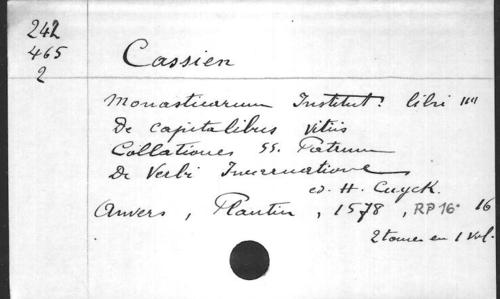 242
465
2
Cassien
Monasticarum Institut. libri IIII
De capitalibus vitiis
Collationes SS. Patrum
De Verbi Incarnatione
ed. H. Cuyck.
Anvers, Plantin, 1578, RP 16° 16
2 tomes en 1 vol.